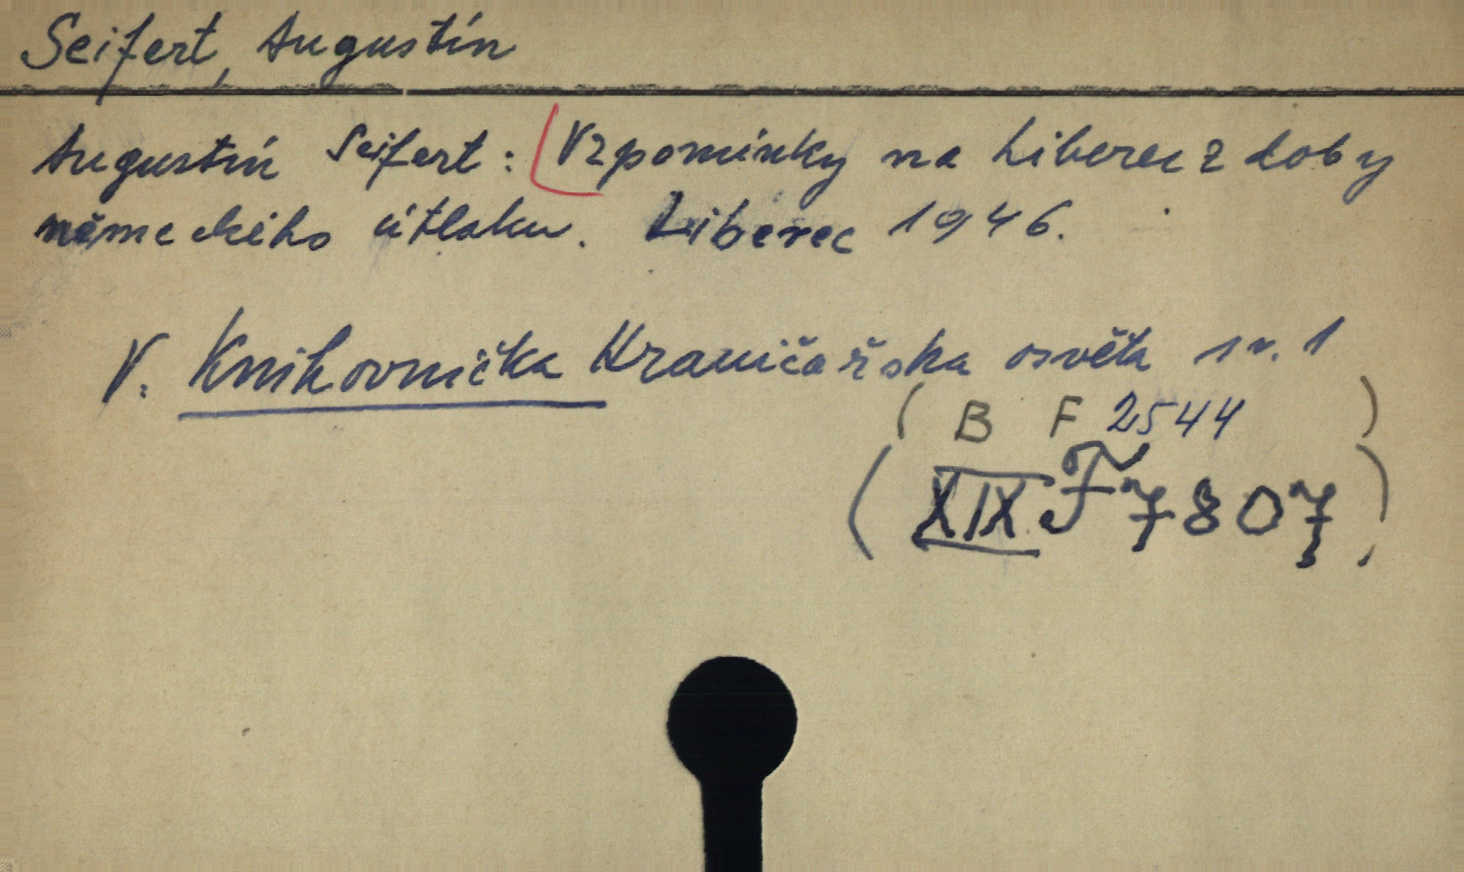 Seifert, Augustín
Augustin Seifert: Vzpomínky na Liberec z doby
německého útlaku. Liberec 1946.
V. Knihovnička Hraničářska osvěta sv. 1
( B F 2544 )
( XIX F 7807 )